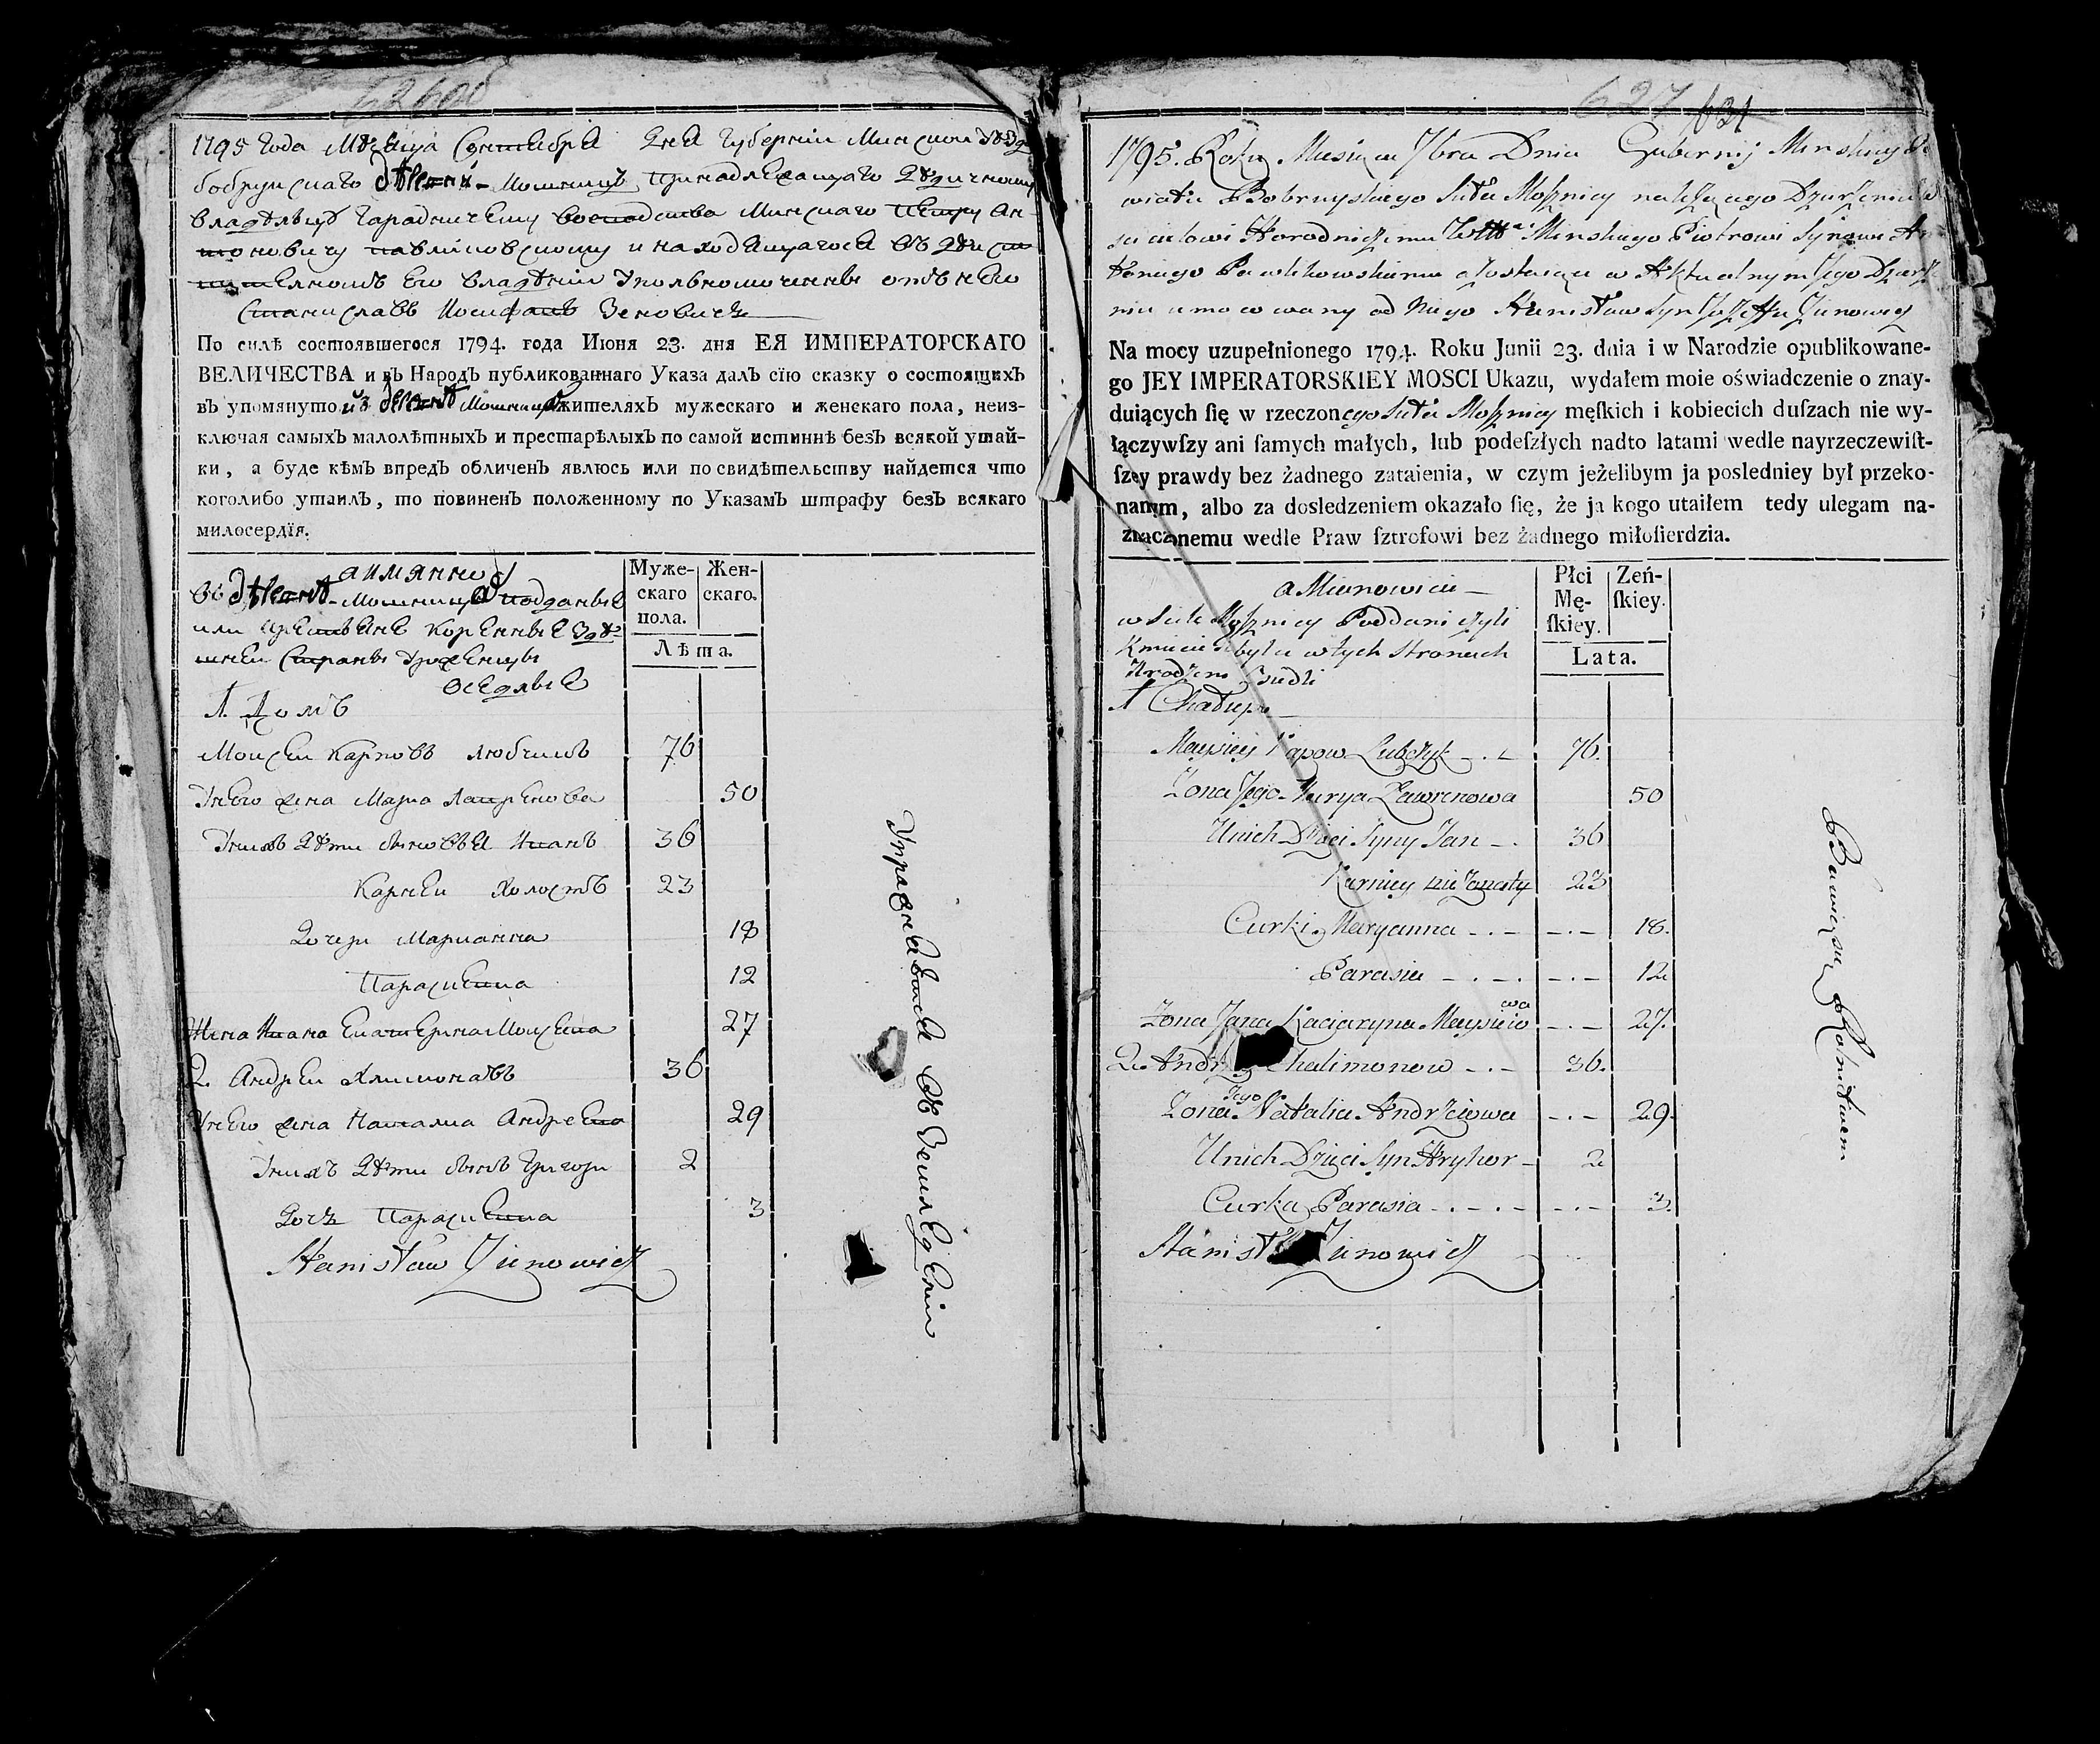 1795 года Мѣсяца Сентября дня Губерніи Минской
бобруйскаго Мошницъ принадлежащаго дѣдичному
владѣльцу Гараднічему воеводства Минскаго Петру Ан-
тоновичу павліковскому и находящагося въ дѣйст
вителномъ его владѣніи уполномоченны отъ него
Станиславъ Иосифавъ Зеновичъ
По силѣ состоявшегося 1794. года Июня 23. дня ЕЯ ИМПЕРАТОРСКАГО
ВЕЛИЧЕСТВА и въ Народъ публикованнаго Указа далъ сїю сказку о состоящихъ
въ упомянуто жителяхъ мужескаго и женскаго пола, неиз-
ключая самыхъ малолѣтныхъ и престарѣлыхъ по самой истиннѣ безъ всякой утай-
ки, а буде кѣмъ впредъ обличенъ явлюсь или по свидѣтельству найдется что
коголибо утаилъ, то повиненъ положенному по Указамъ штрафу безъ всякаго
милосердїя.
аимянно
подданые
или крестьяне коренные здѣ
шней стораны уроженцы
оседлые
Муже-
скаго
пола.
Жен-
скаго.
Лѣта.
1. Домъ
Моисеи Карповъ 76
Унего жена Мария Лавренова 50
Унихъ дѣти сыновья Иванъ 36
Карнеи холостъ 23
Дочери Марианна 18
Параскева 12
Жена Ивана Екатерина 27
2. Андреи Халимонавъ 36
Унего жена Наталиа 29
Унихъ дѣти сынъ Григори 2
Дочь Параскева 3
Stanisław Zienowicz
Упражняются въ Земледеліи
627 631
1795. Roku Miesiąca 7bra Dnia Gubernij Minskiey
wiatu Bobruyskiego Sioła Mosznicy należącego
Horodniczemu Minskiego Piotrowi Synowi An
toniego Pawlikowskiemu
umocowany od Niego Stanisław Syn Józeffa Zienowicz
Na mocy uzupełnionego 1794. Roku Junii 23. dnia i w Narodzie opublikowane-
go JEY IMPERATORSKIEY MOSCI Ukazu, wydałem moie oświadczenie o znay-
duiących ſię w rzeczonego Sioła Mosznicy męſkich i kobiecich duſzach nie wy-
łączywſzy ani ſamych małych, lub podeſzłych nadto latami wedle nayrzeczewiſt-
ſzey prawdy bez żadnego zataienia, w czym jeżelibym ja posledniey był przeko-
nanym, albo za dosledzeniem okazało ſię, że ja kogo utaiłem tedy ulegam na-
znaczonemu wedle Praw ſztrofowi bez żadnego miłoſierdzia.
a Mianowicie
w Siele Mosznicy Poddani czyli
Kmiecie w tych Stronach
Urodzeni
Płci
Mę-
ſkiey.
Zeń-
ſkiey.
Lata.
1 Chałupa
Maysiey Lubczyk 76.
Zona Jego Marya Ławrenowa 50
Unich Dzieci Syny Jan 36
Karniey nie żonaty 23
Curki Maryanna 18.
Parasia 12
Zona Jana Kaciaryna 27.
2. Chalimonow 36.
Zona Jego Natalia Andrzeiowa 29.
Unich Dzieci Syn Hryhor 2
Curka Parasia 3.
Zienowicz
Bawią się Rolnictwem